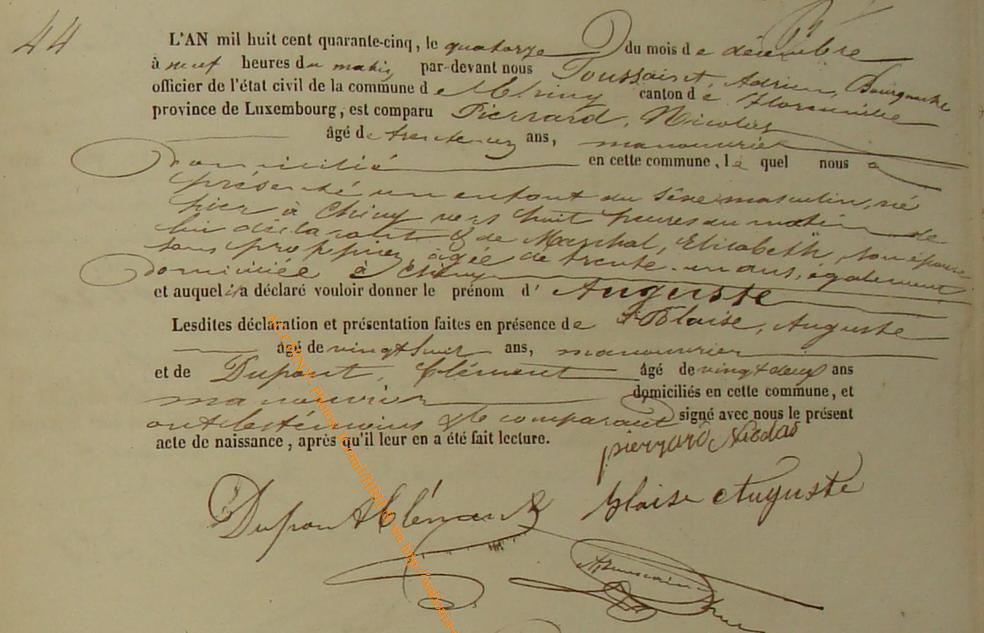 44
L'AN mil huit cent quarante-cinq, le quatorze du mois de décembre
à neuf heures du matin par-devant nous Toussaint, Adrien,
officier de l'état civil de la commune de Chiny canton de Florenville
province de Luxembourg, est comparu Pierrard, Nicolas
âgé de trente-un ans, manouvrier
domicilié en cette commune, le quel nous a
présenté un enfant du sexe masculin, né
hier à Chiny vers huit heures du matin de
lui déclarant & de Maréchal, Elisabeth, son épouse
sans profession, âgée de trente-un ans, également
domiciliée à Chiny
et auquel il a déclaré vouloir donner le prénom d' Auguste
Lesdites déclaration et présentation faites en présence de Blaise, Auguste
âgé de vingt ans, manouvrier
et de Dupont, Clément âgé de vingt deux ans
manouvrier domiciliés en cette commune, et
ont les témoins & le comparant signé avec nous le présent
acte de naissance, après qu'il leur en a été fait lecture.
pierrard Nicolas
Dupont Clément Blaise Auguste